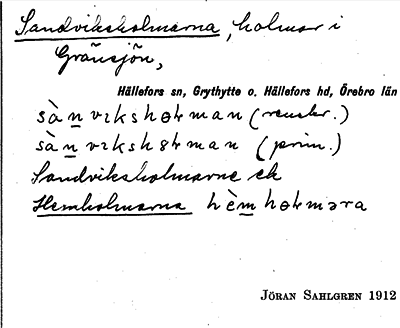 Sandviksholmarna, holmar i
Gränsjön,
Hällefors sn, Grythytte o. Hällefors hd, Örebro län
sàn vıkshɵɫman (renskr.)
sàn vıkshɵɫman (prim.)
Sandviksholmarne ek
Hemholmarna hèm hɵɫməra
JÖRAN SAHLGREN 1912